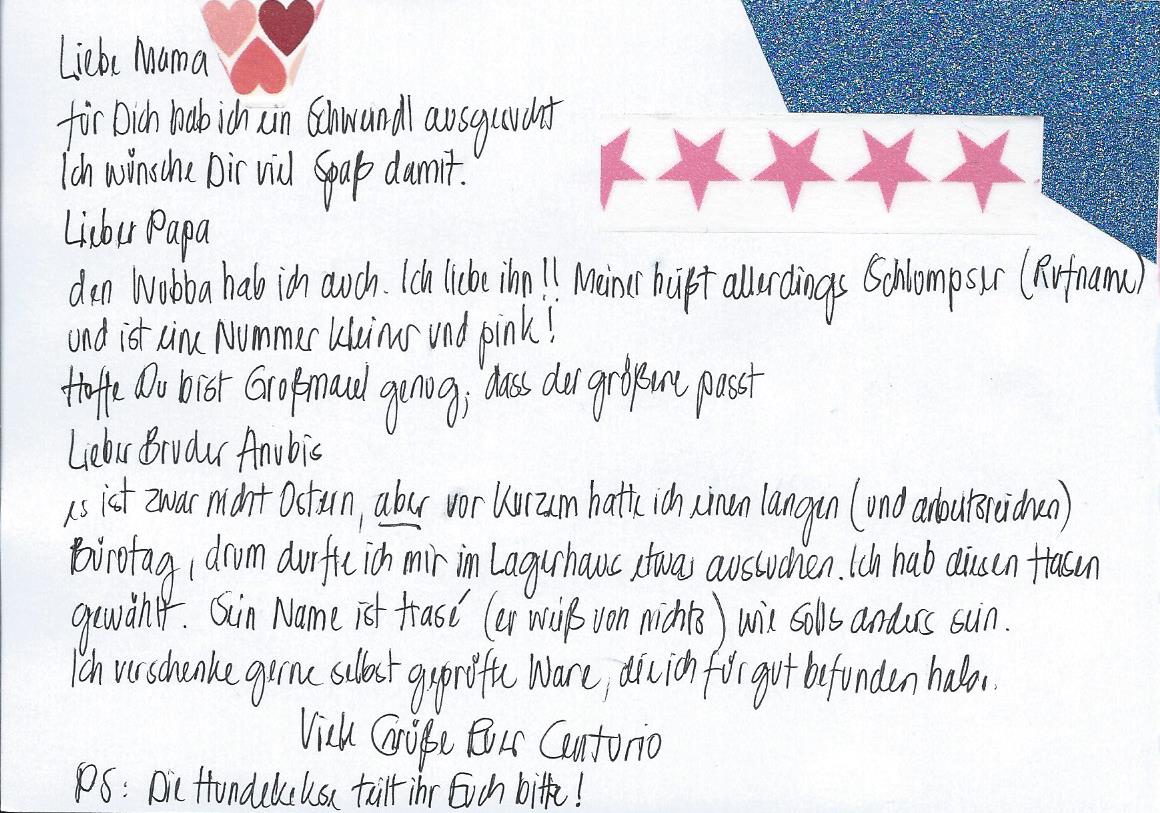 Liebe Mama
für Dich hab ich ein Schweindl ausgesucht
Ich wünsche Dir viel Spaß damit.
Lieber Papa
den Wubba hab ich auch. Ich liebe ihn!! Meiner heißt allerdings Schlumpser (Rufname)
und ist eine Nummer kleiner und pink!
Hoffe Du bist Großmaul genug, dass der größere passt
Lieber Bruder Anubis
es ist zwar nicht Ostern, aber vor Kurzem hatte ich einen langen (und arbeitsreichen)
Bürotag, drum durfte ich mir im Lagerhaus etwas aussuchen. Ich hab diesen Hasen
gewählt. Sein Name ist Hasé (er weiß von nichts) wie solls anders sein.
Ich verschenke gerne selbst geprüfte Ware, die ich für gut befunden habe.
Viele Grüße Euer Centurio
PS: Die Hundekekse teilt ihr Euch bitte!